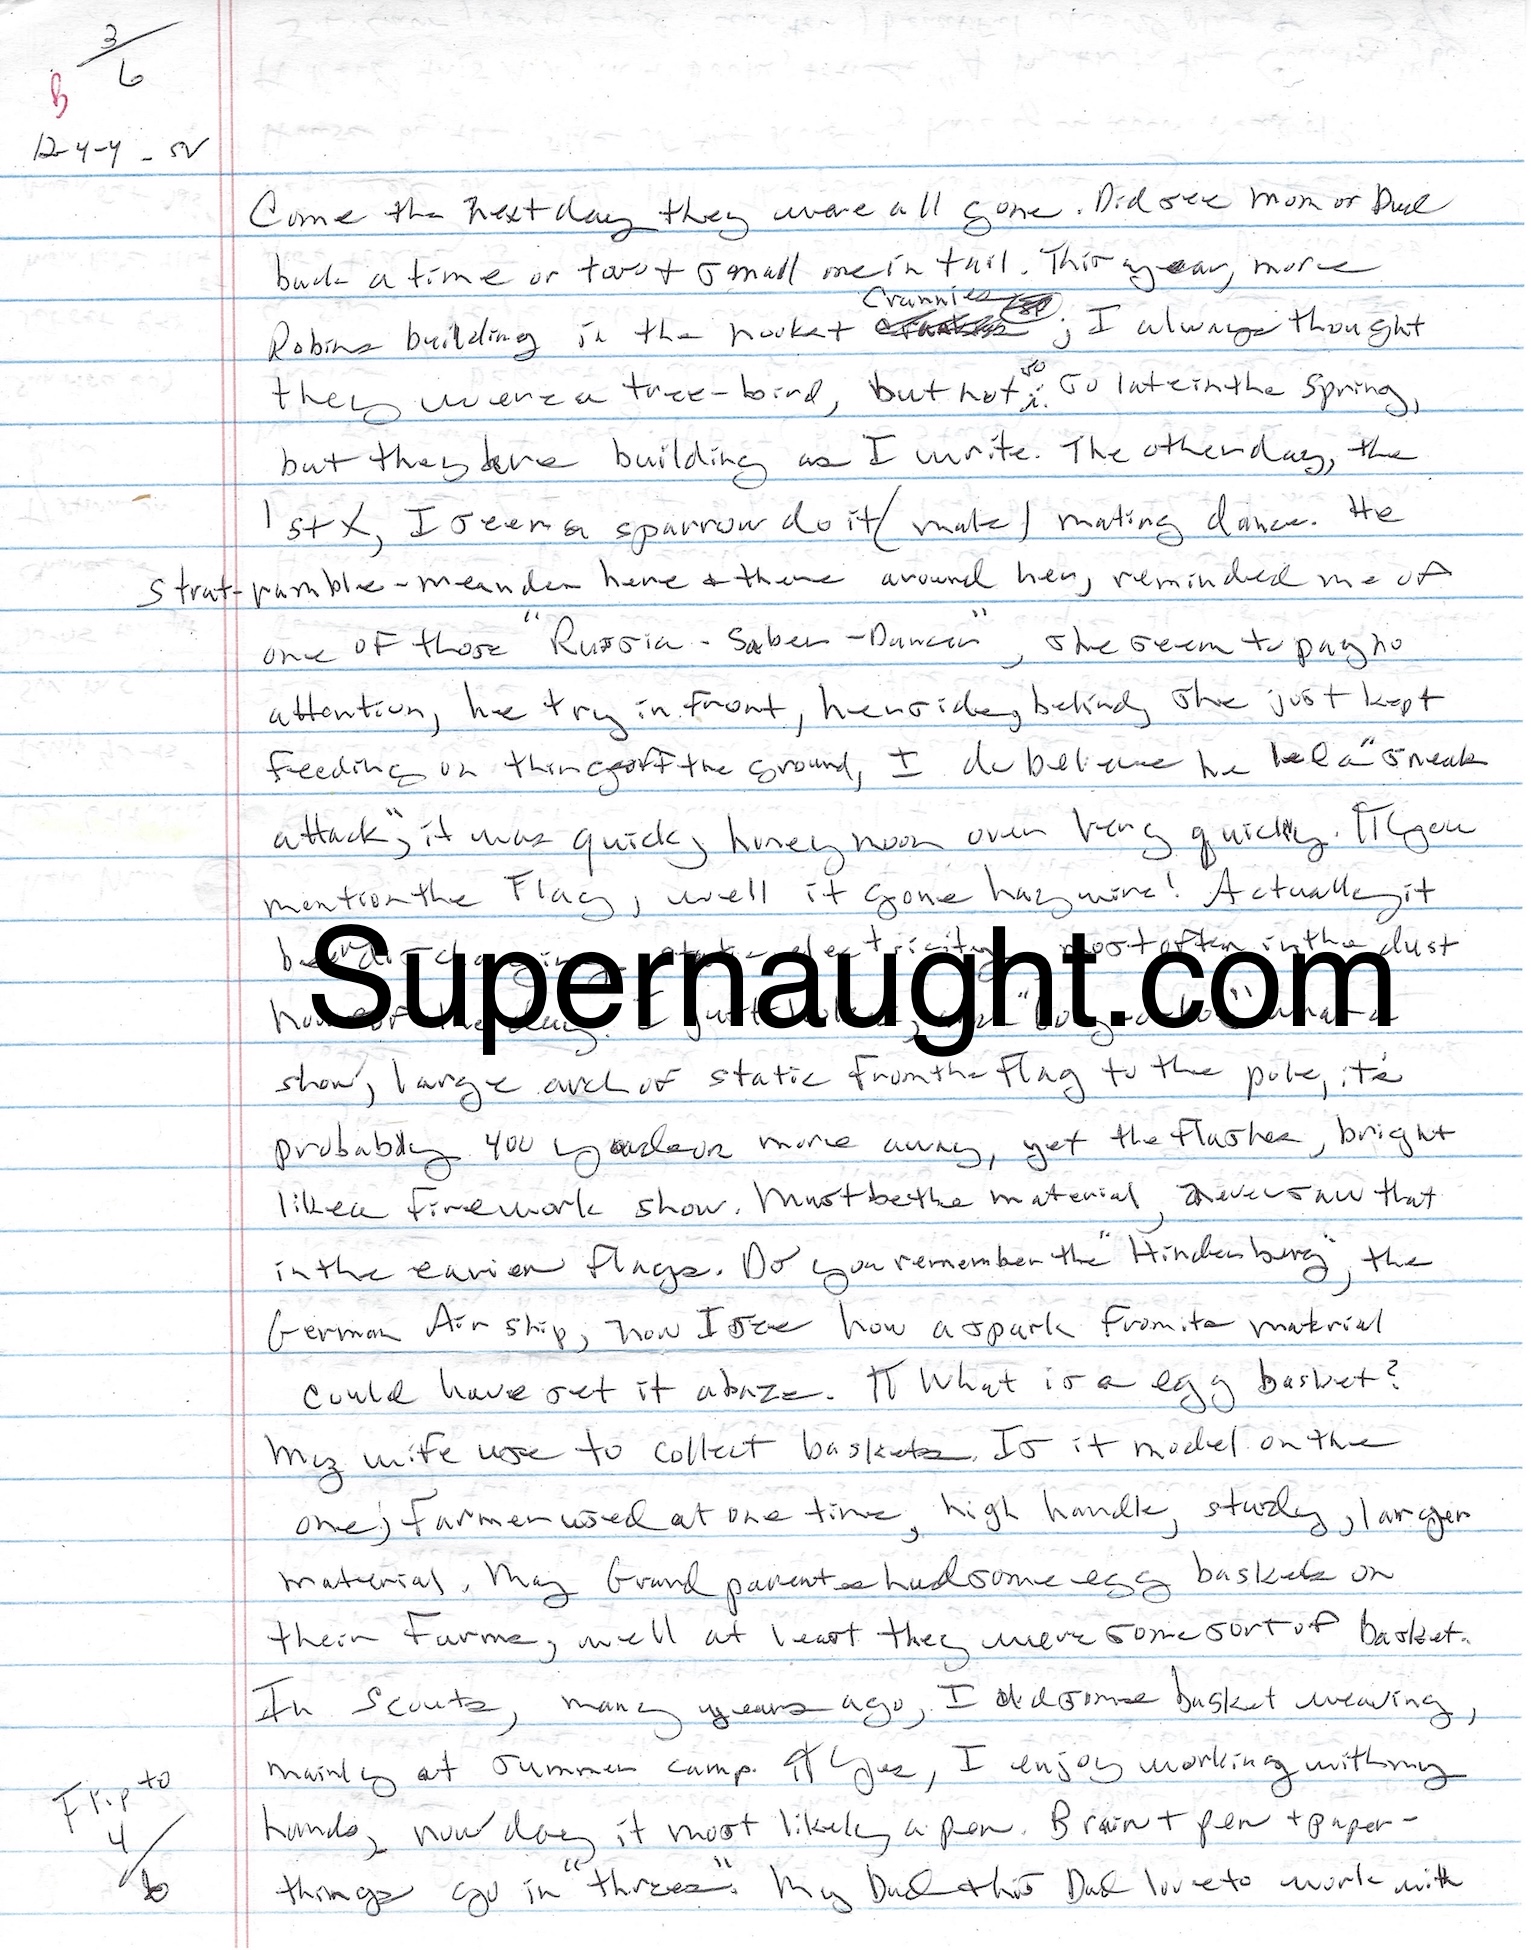 3/6
B
12-4-4 - SV
Come the next day they were all gone. Did see Mom or Dad
back a time or two + small one in tail. This year, more
Robins building in the nooket Crannies SP
; I always thought
they were a tree-bird, but not so. So late in the Spring,
but they are building as I write. The other day, the
1st X, I seen a sparrow do it (male) mating dance. He
strut-ramble-meander here & there around her, reminded me of
one of those "Russia - Saber - Dancer", she seem to pay no
attention, he try in front, her side, behind, she just kept
feeding on things off the ground, I do believe he a "sneak
attack", it was quick, honeymoon over very quickly. ¶ You
mention the Flag, well it gone haywire! Actually it
static electricity most often in the dust
hour of the day. I just
show, large arch of static from the flag to the pole, it's
probably 400 yards or more away, yet the flashes, bright
like a firework show. Must be the material, never saw that
in the earier flags. Do you remember the "Hindenburg", the
German Air ship, now I see how a spark from its material
could have set it abaze. ¶ What is a egg basket?
My wife use to collect baskets. Is it model on the
one; Farmer used at one time, high handle, study, larger
material. May Grand parents had some egg baskets on
their Farms, well at least they were some sort of basket.
In Scouts, many years ago, I did some basket weaving,
mainly at summer camp. ¶ Yes, I enjoy working with my
hands, now day it most likely a pen. Brain + pen + paper -
things go in "threes". My Dad & this Dad love to work with
Flip to
4/6
Supernaught.com